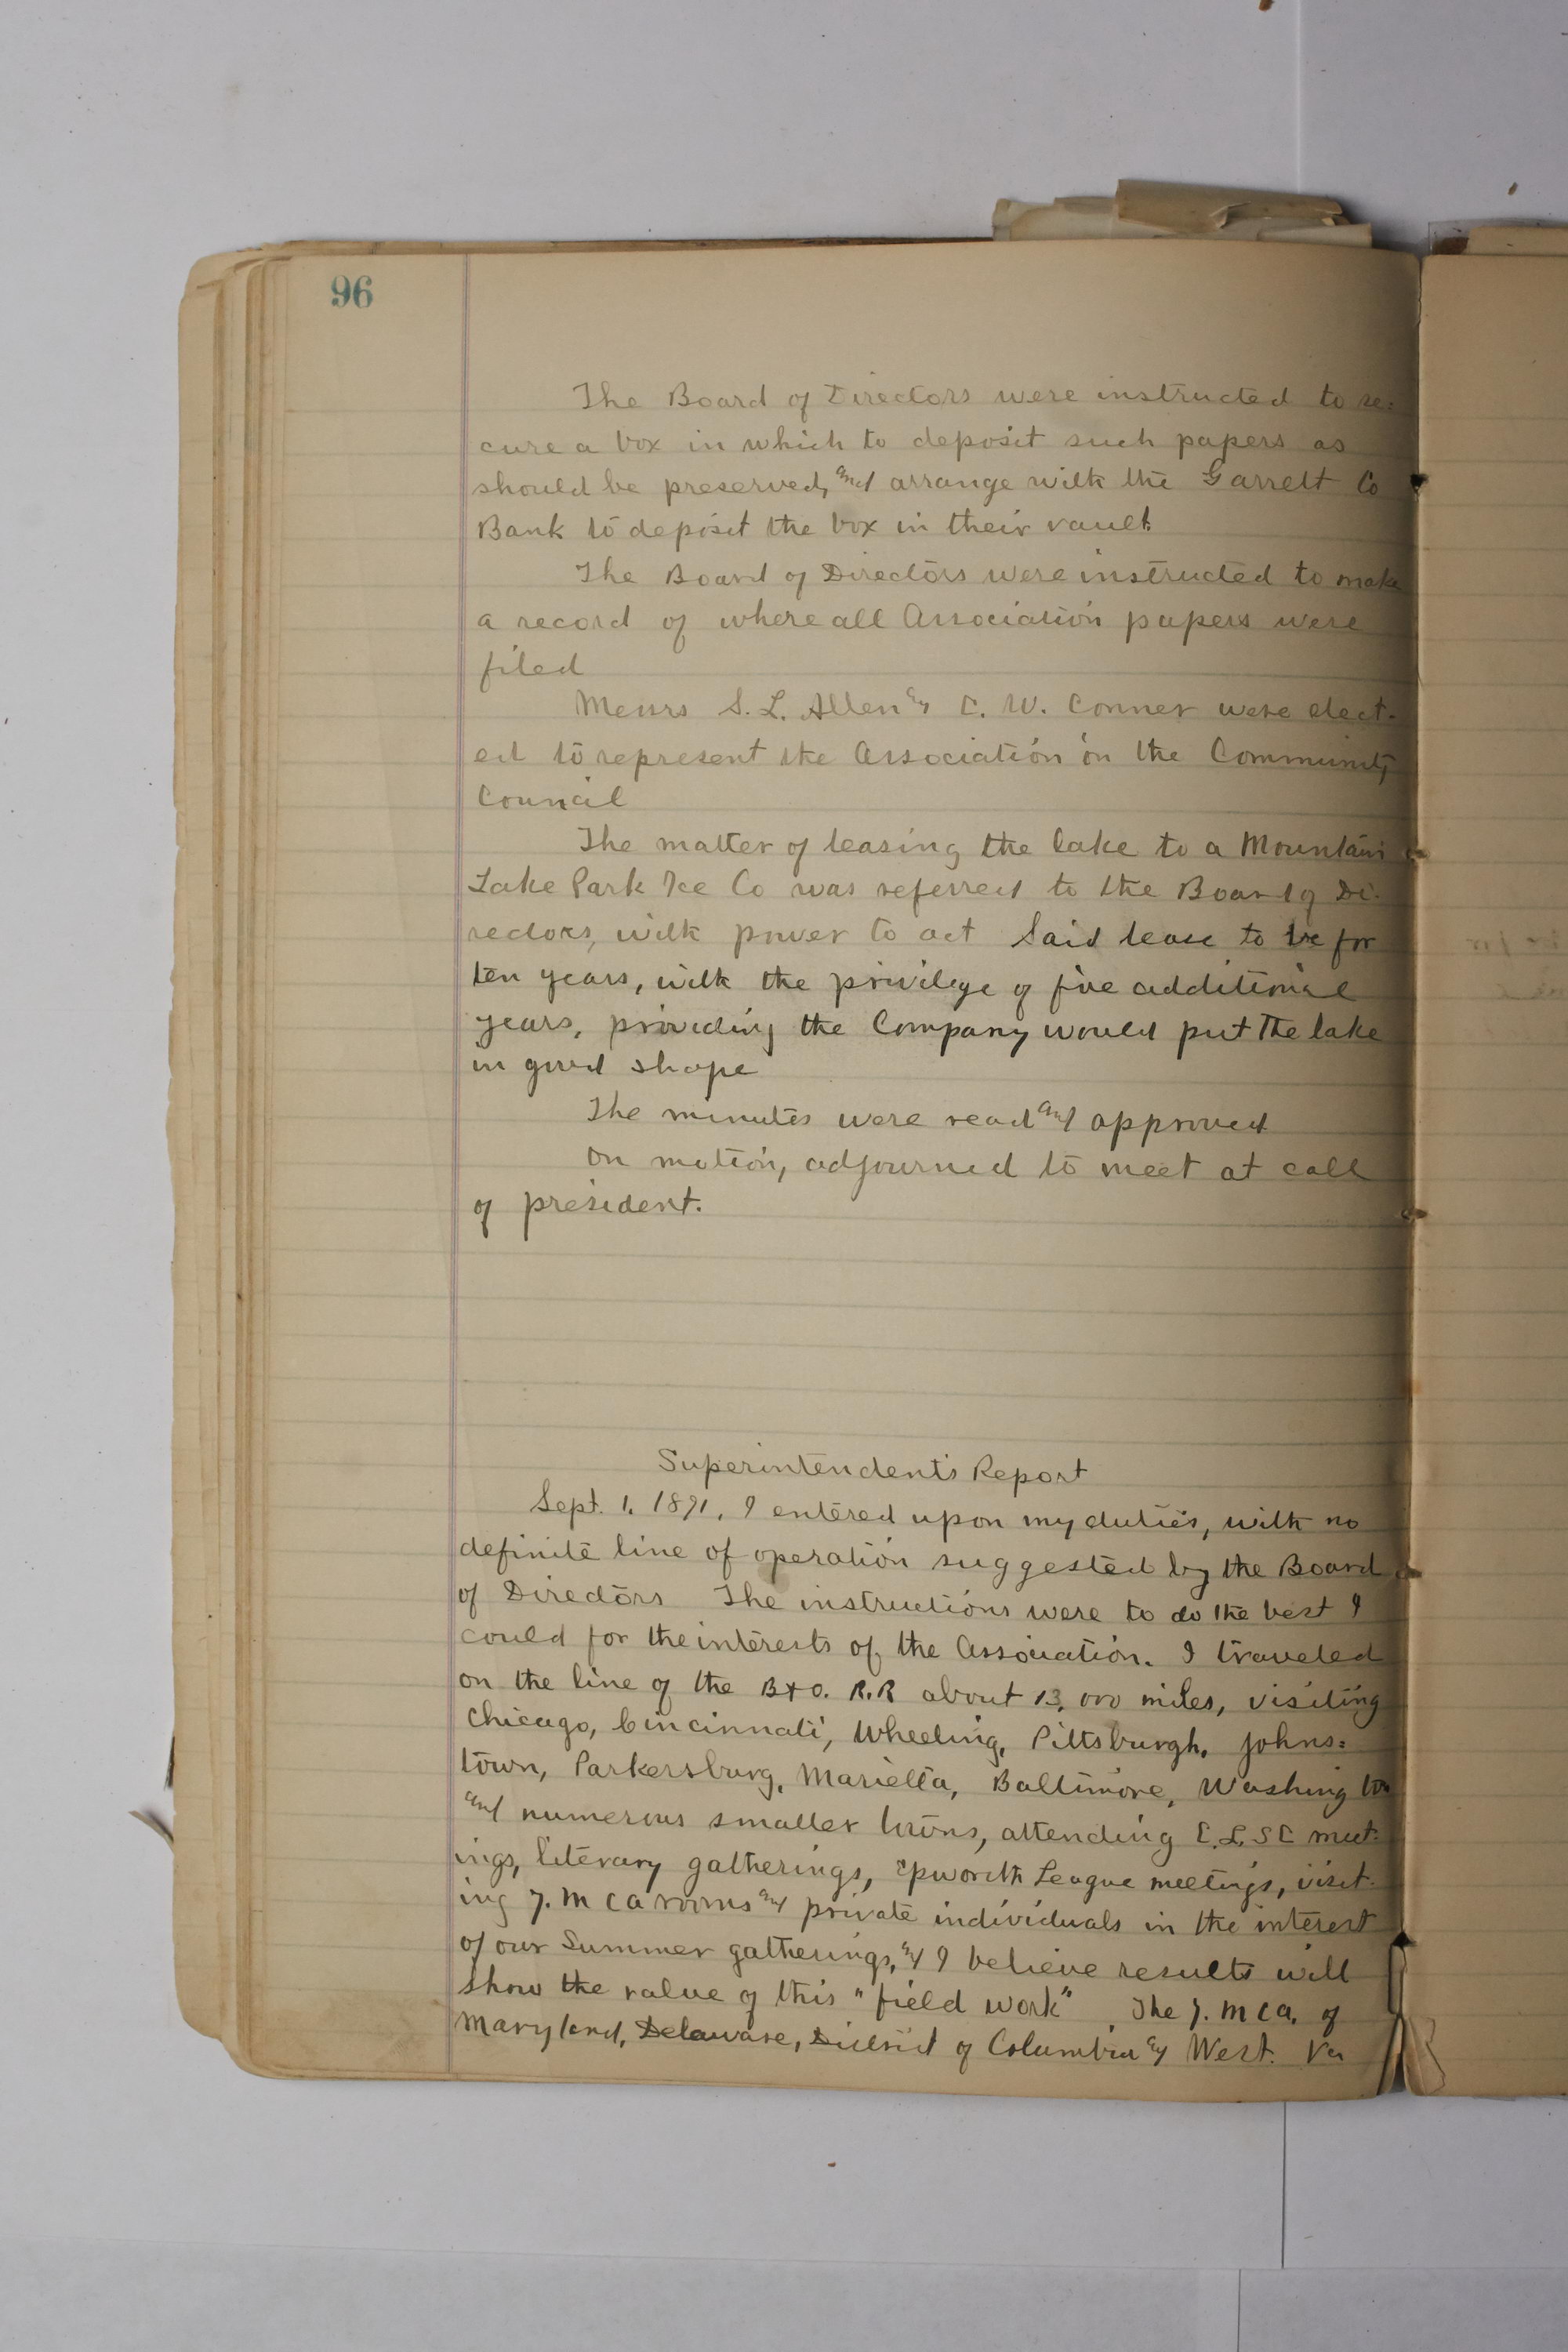 96
The Board of Directors were instructed to se=
cure a box in which to deposit such papers as
should be preserved, and arrange with the Garrett Co
Bank to deposit the box in their vault.
The Board of Directors were instructed to make
a record of where all Association papers were
filed
Messrs S. L. Allen & C. W. Conner were elect-
ed to represent the Association on the Community
Council
The matter of leasing the lake to a Mountain
Lake Park Ice Co was referred to the Board of Di-
rectors, with power to act Said lease to be for
ten years, with the privilege of five additional
years, providing the Company would put the lake
in good shape
The minutes were read and approved
On motion, adjourned to meet at call
of president.
Superintendent's Report
Sept. 1. 1891. I entered upon my duties, with no
definite line of operation suggested by the Board
of Directors The instructions were to do the best I
could for the interests of the Association. I traveled
on the line of the B & O. R.R about 13,000 miles, visiting
Chicago, Cincinnati, Wheeling, Pittsburgh, Johns=
town, Parkersburg, Marietta, Baltimore, Washington
and numerous smaller towns, attending C.L.S C meet-
ings, literary gatherings, Epworth League meetings, visit-
ing Y. M C A rooms and private individuals in the interest
of our Summer gatherings, & I believe results will
show the value of this "field work". The Y. M C A. of
Maryland, Delaware, District of Columbia & West. Va